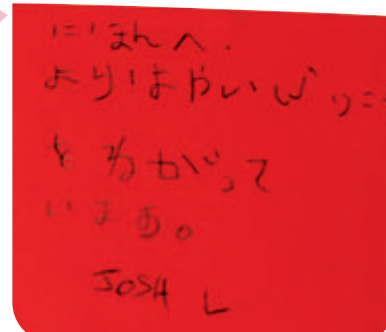 にほんへ.
よりはやいふっこ
とねがって
います。
JOSH L